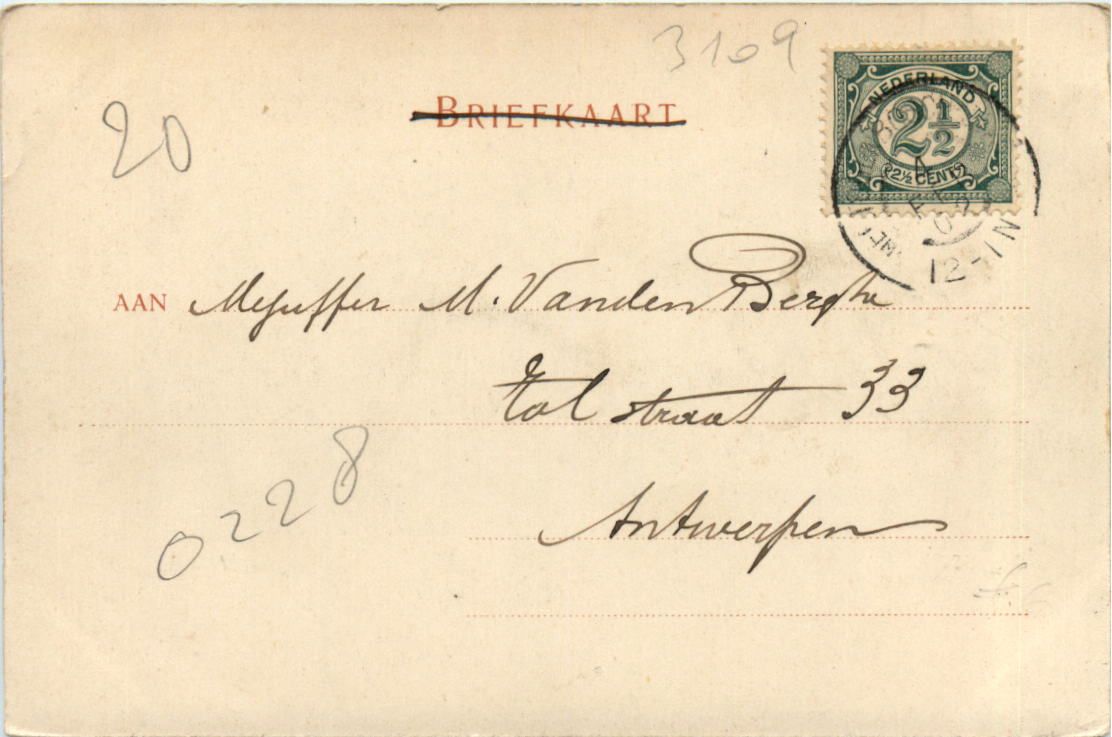 3109
20
BRIEFKAART
NEDERLAND
2½
2½ CENT
12-1N
AAN Mejuffer M. Vanden Berghe
Tolstraat 33
Antwerpen
0228